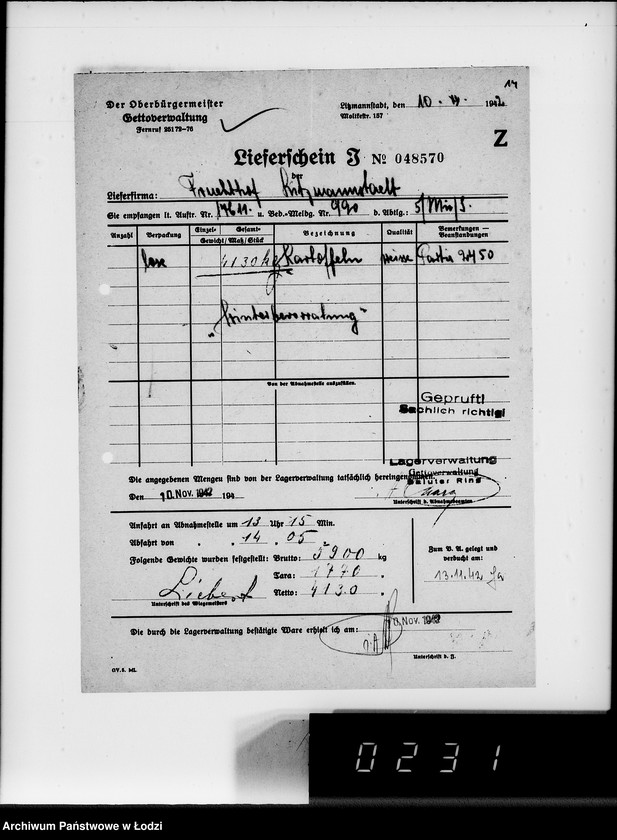 14
Der Oberbürgermeister
Gettoverwaltung
Fernruf 26172-76
Litzmannstadt, den 10. 1942
Moltkestr. 157
Z
Lieferschein J № 048570
der
Lieferfirma: Fruchthof Litzmannstadt
Sie empfangen lt. Auftr. Nr. u. Bed.-Meldg. Nr. 990 d. Abtlg.:
Anzahl Verpackung Einzel- Gesamt- Bezeichnung Qualität Bemerkungen — Beanstandungen
Gewicht / Maß / Stück
lose 4130 kg Kartoffeln weisse Partie 2450
"Winterbevorratung"
Von der Abnahmestelle auszufüllen.
Geprüft!
Sachlich richtig!
Lagerverwaltung
Gettoverwaltung
Baluter Ring
Die angegebenen Mengen sind von der Lagerverwaltung tatsächlich hereingenommen.
Den 10. Nov. 1942 194
Unterschrift d. Abnahmebeamten
Anfahrt an Abnahmestelle um 13 Uhr 15 Min.
Abfahrt von " " 14 " 05 "
Folgende Gewichte wurden festgestellt: Brutto: 5900 kg
Tara: 1770 "
Netto: 4130 "
Liebert
Unterschrift des Wiegemeisters
Zum B. A. gelegt und
verbucht am:
13.11.42
Die durch die Lagerverwaltung bestätigte Ware erhielt ich am: 10. Nov. 1942
Unterschrift d. J.
0231
Archiwum Państwowe w Łodzi